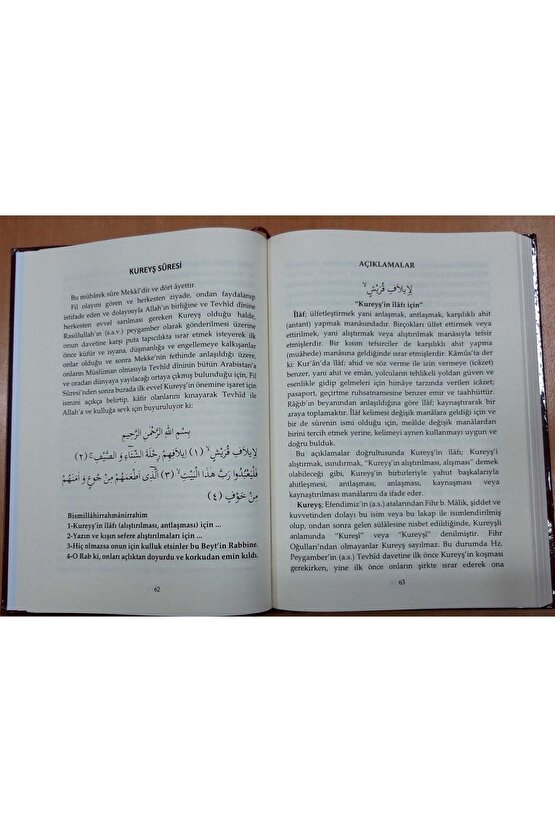 KUREYŞ SÛRESİ
Bu mübârek sûre Mekkî'dir ve dört âyettir.
Fil olayını gören ve herkesten ziyade, ondan faydalanıp
istifade eden ve dolayısıyla Allah'ın birliğine ve Tevhîd dînine
herkesten evvel sarılması gereken Kureyş olduğu halde,
Rasûlullah'ın (s.a.v.) peygamber olarak gönderilmesi üzerine
onun davetine karşı puta tapıcılıkta ısrar etmek isteyerek ilk
önce küfür ve isyana; düşmanlığa ve engellemeye kalkışanlar,
onlar olduğu ve sonra Mekke'nin fethinde anlaşıldığı üzere,
onların Müslüman olmasıyla Tevhîd dîninin bütün Arabistan'a
ve oradan dünyaya yayılacağı ortaya çıkmış bulunduğu için, Fil
Sûresi'nden sonra burada ilk evvel Kureyş'in önemine işaret için
ismini açıkça belirtip, kâfir olanlarını kınayarak Tevhîd ile
Allah'a ve kulluğa sevk için buyuruluyor ki:
بِسْمِ اللّٰهِ الرَّحْمٰنِ الرَّحِيمِ
لِا۪يلَافِ قُرَيْشٍۙ (١) ا۪يلَافِهِمْ رِحْلَةَ الشِّتَٓاءِ وَ الصَّيْفِۚ (٢)
فَلْيَعْبُدُوا رَبَّ هٰذَا الْبَيْتِۙ (٣) اَلَّذ۪ٓي اَطْعَمَهُمْ مِنْ جُوعٍ وَ اٰمَنَهُمْ
مِنْ خَوْفٍ (٤)
Bismillâhirrahmânirrahim
1-Kureyş'in ilâfı (alıştırılması, antlaşması) için ...
2-Yazın ve kışın sefere alıştırılmaları için ...
3-Hiç olmazsa onun için kulluk etsinler bu Beyt'in Rabbine.
4-O Rab ki, onları açlıktan doyurdu ve korkudan emin kıldı.
62
AÇIKLAMALAR
لِا۪يلَافِ قُرَيْشٍۙ
"Kureyş'in ilâfı için"
İlâf; ülfetleştirmek yani anlaşmak, antlaşmak, karşılıklı ahit
(antant) yapmak manâsınadır. Birçokları ülfet ettirmek veya
ettirilmek, yani alıştırmak veya alıştırılmak manâsıyla tefsir
etmişlerdir. Bir kısım tefsirciler de karşılıklı ahit yapma
(muâhede) manâsına geldiğinde ısrar etmişlerdir. Kâmûs'ta der
ki: Kur'ân'da îlâf; ahid ve söz ile izin vermeye (icâzet)
benzer, yani ahit ve emân, yolcuların tehlikeli yoldan güven ve
esenlikle gidip gelmeleri için himâye tarzında verilen (icâzet;
pasaport, geçirtme ruhsatnamesine benzer emir ve taahhüttür.
Râğıb'ın beyanından anlaşıldığına göre îlâf; kaynaştırarak bir
araya toplamaktır. İlaf kelimesi değişik manâlara geldiği için ve
bir de sûrenin ismi olduğu için, meâlde değişik manâlardan
birini tercih etmek yerine, kelimeyi aynen kullanmayı uygun ve
doğru bulduk.
Bu açıklamalar doğrultusunda Kureyş'in îlâfı; Kureyş'i
alıştırmak, ısındırmak, "Kureyş'in alıştırılması, alışması" demek
olabileceği gibi, Kureyş'in birbirleriyle yahut başkalarıyla
ahitleşmesi, antlaşması, anlaşması, kaynaşması veya
kaynaştırılması manâlarını da ifade eder.
Kureyş; Efendimiz'in (a.s.) atalarından Fihr b. Mâlik, şiddet ve
kuvvetinden dolayı bu isim veya bu lakap ile isimlendirilmiş
olup, ondan sonra gelen sülâlesine nisbet edildiğinde, Kureyşli
anlamında "Kureşî" veya "Kureyşî" denilmiştir. Fihr
Oğulları'ndan olmayanlar Kureyş sayılmaz. Bu durumda Hz.
Peygamber'in (a.s.) Tevhîd davetine ilk önce Kureyş'in koşması
gerekirken, yine ilk önce onların şirkte ısrar ederek ona
63